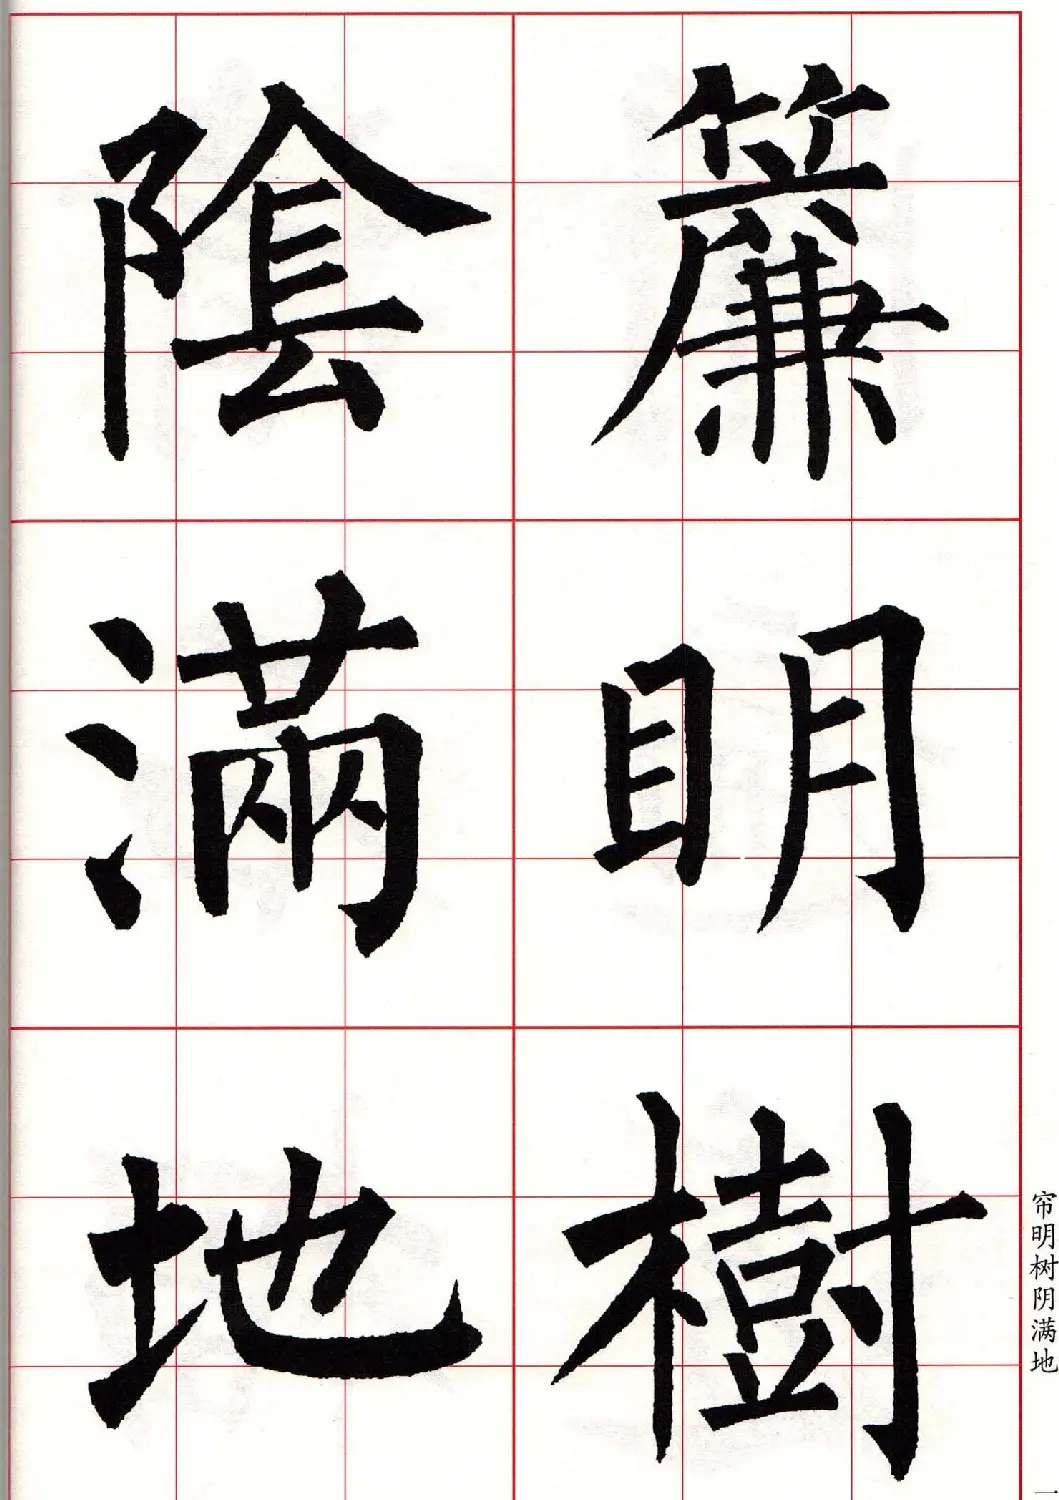 簾明樹
陰滿地
帘明树阴满地
一